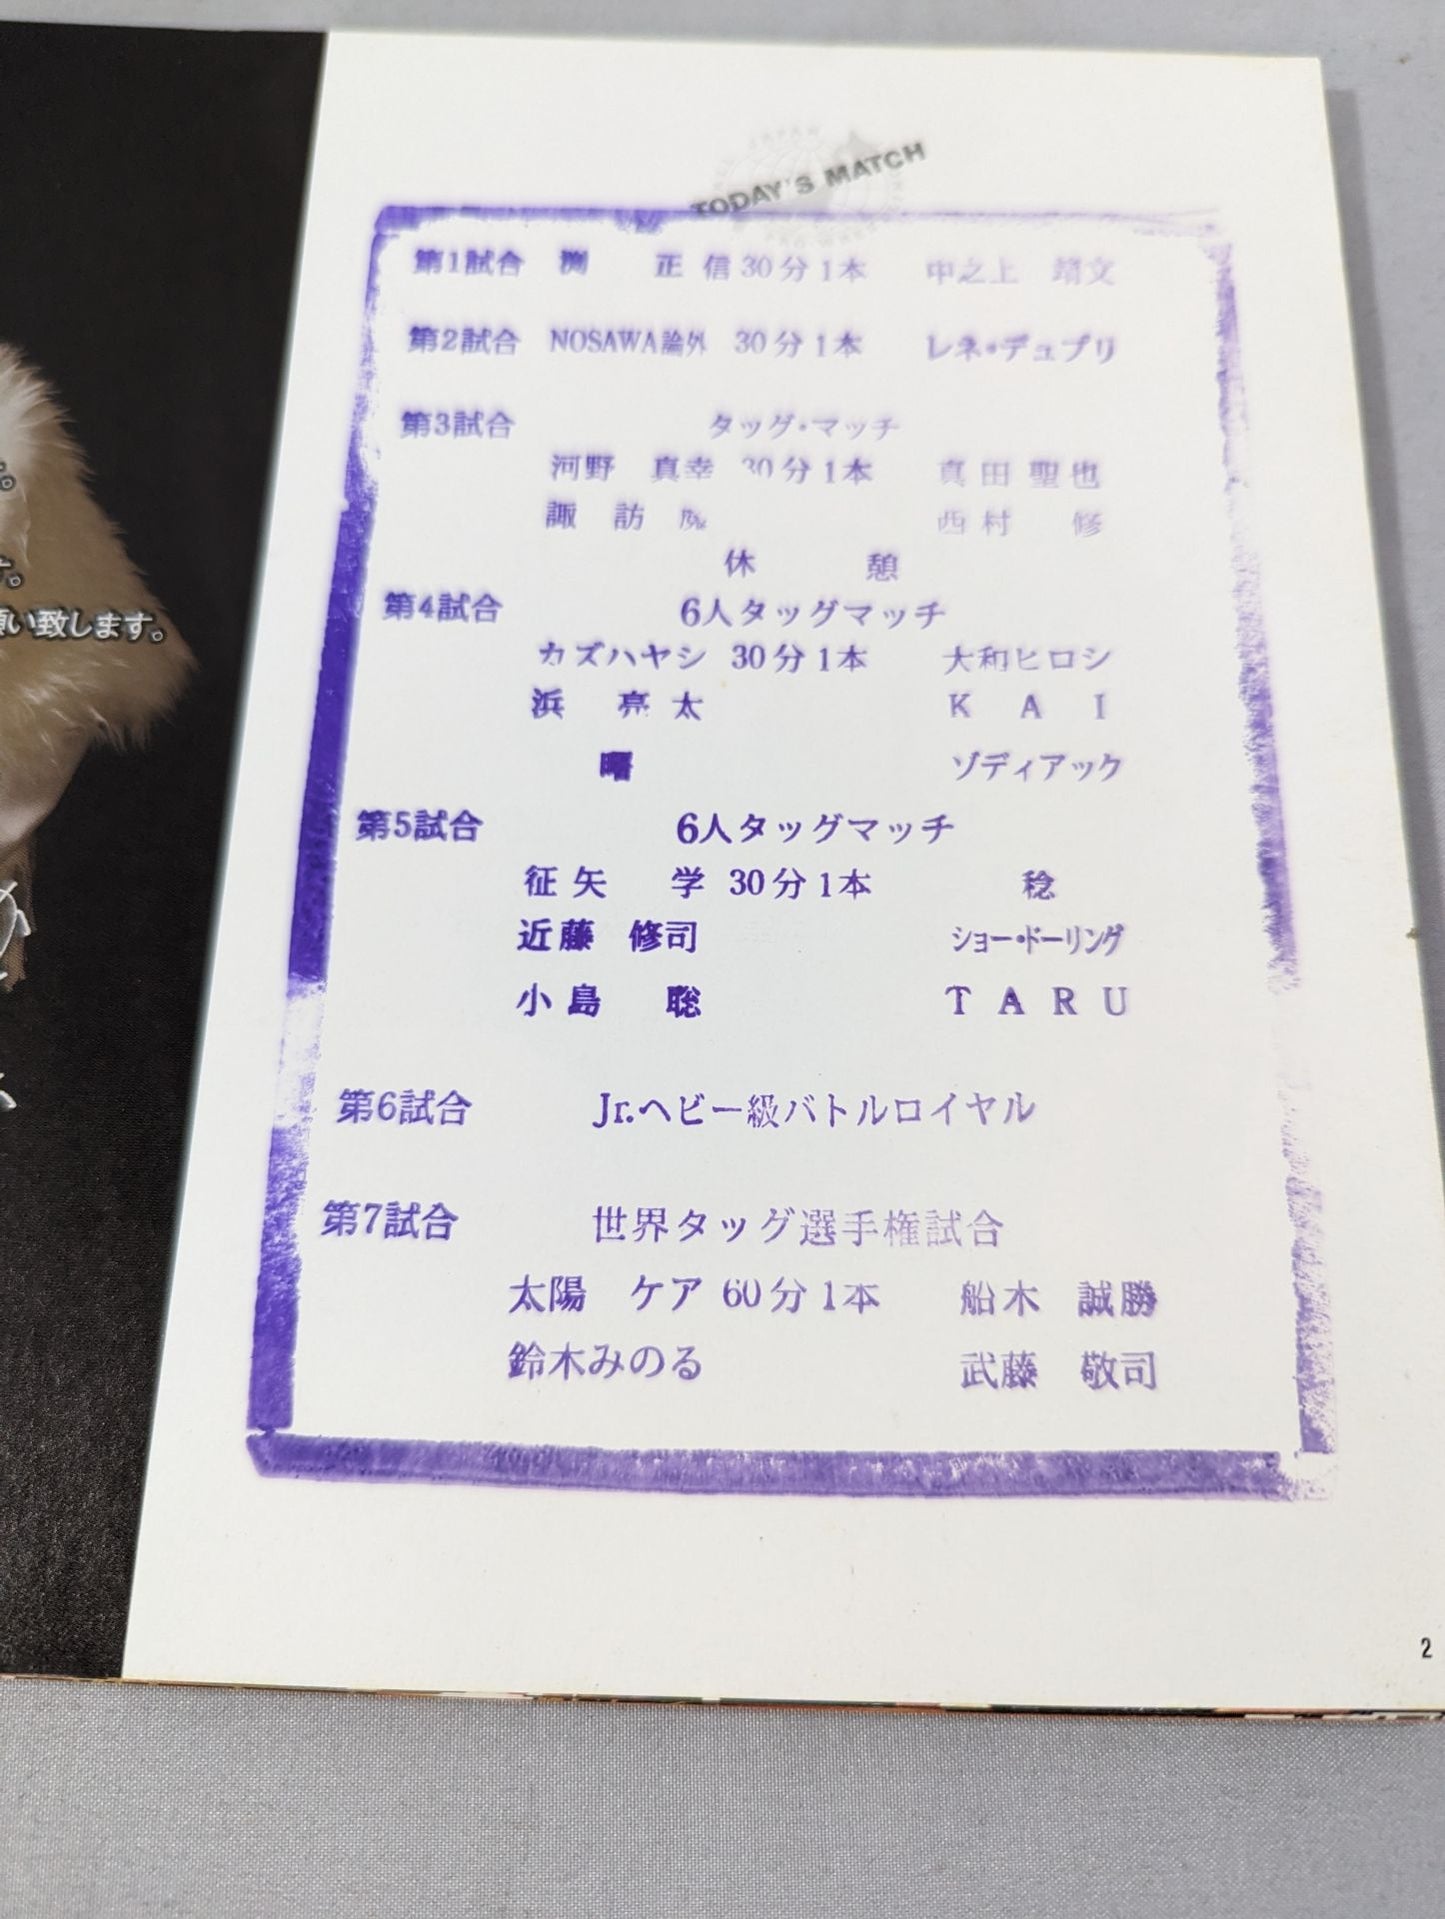 TODAY'S MATCH
第1試合 渕 正信 30分1本 中之上 靖文
第2試合 NOSAWA論外 30分1本 レネ・デュプリ
第3試合 タッグ・マッチ
河野 真幸 30分1本 真田 聖也
諏訪 魔 西村 修
休憩
第4試合 6人タッグマッチ
カズハヤシ 30分1本 大和ヒロシ
浜 亮太 KAI
曙 ゾディアック
第5試合 6人タッグマッチ
征矢 学 30分1本 稔
近藤 修司 ジョー・ドーリング
小島 聡 TARU
第6試合 Jr.ヘビー級バトルロイヤル
第7試合 世界タッグ選手権試合
太陽 ケア 60分1本 船木 誠勝
鈴木みのる 武藤 敬司
願い致します。
2